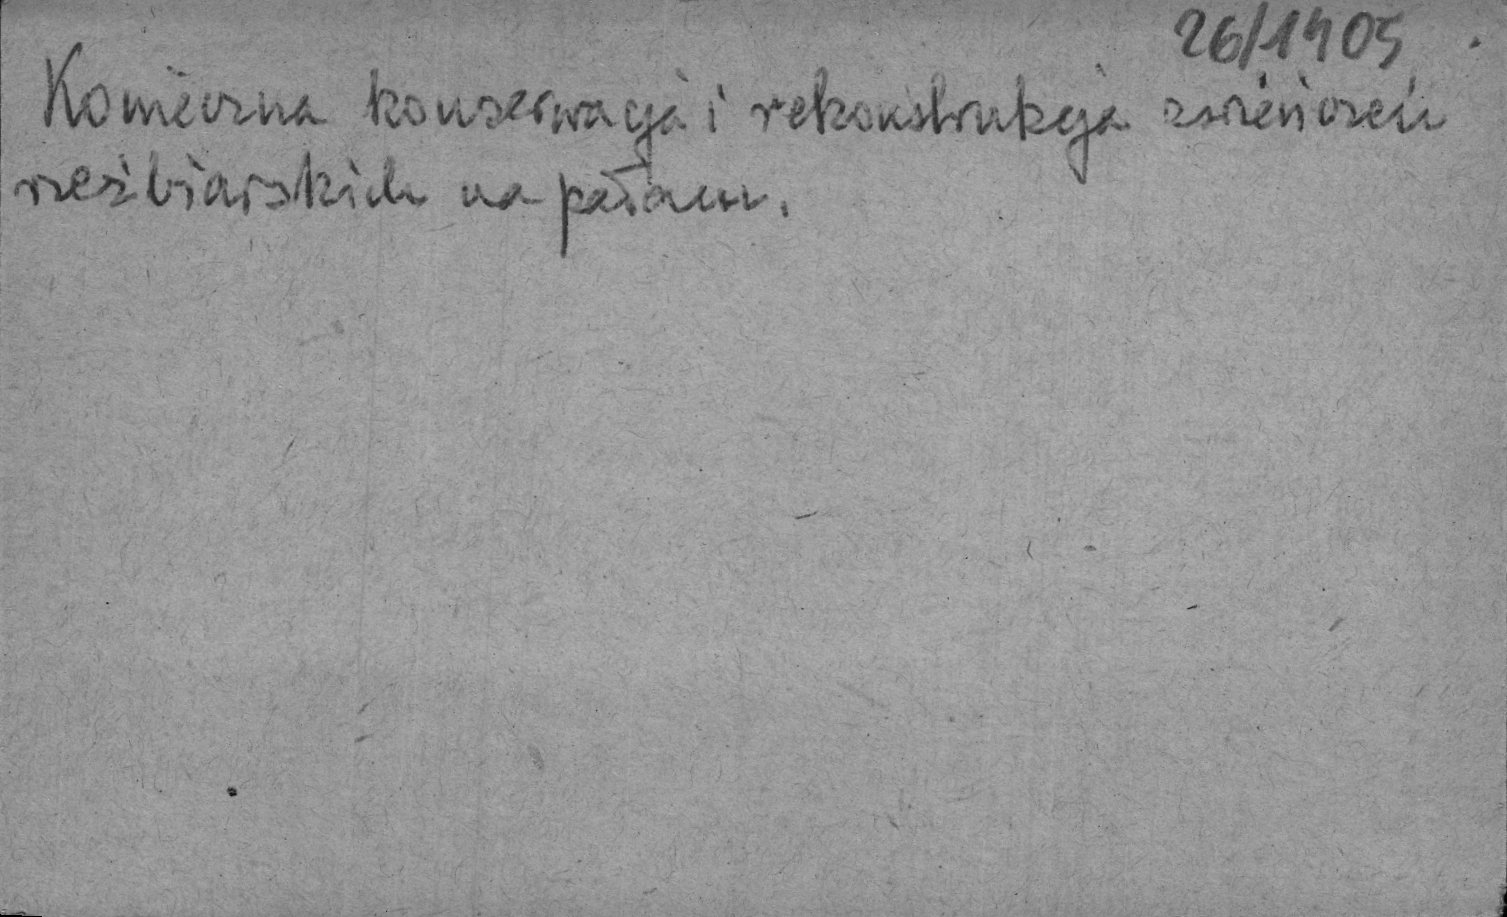 26/1405
Konieczna konserwacja i rekonstrukcja zwieńczeń
rzeźbiarskich na pałacu.